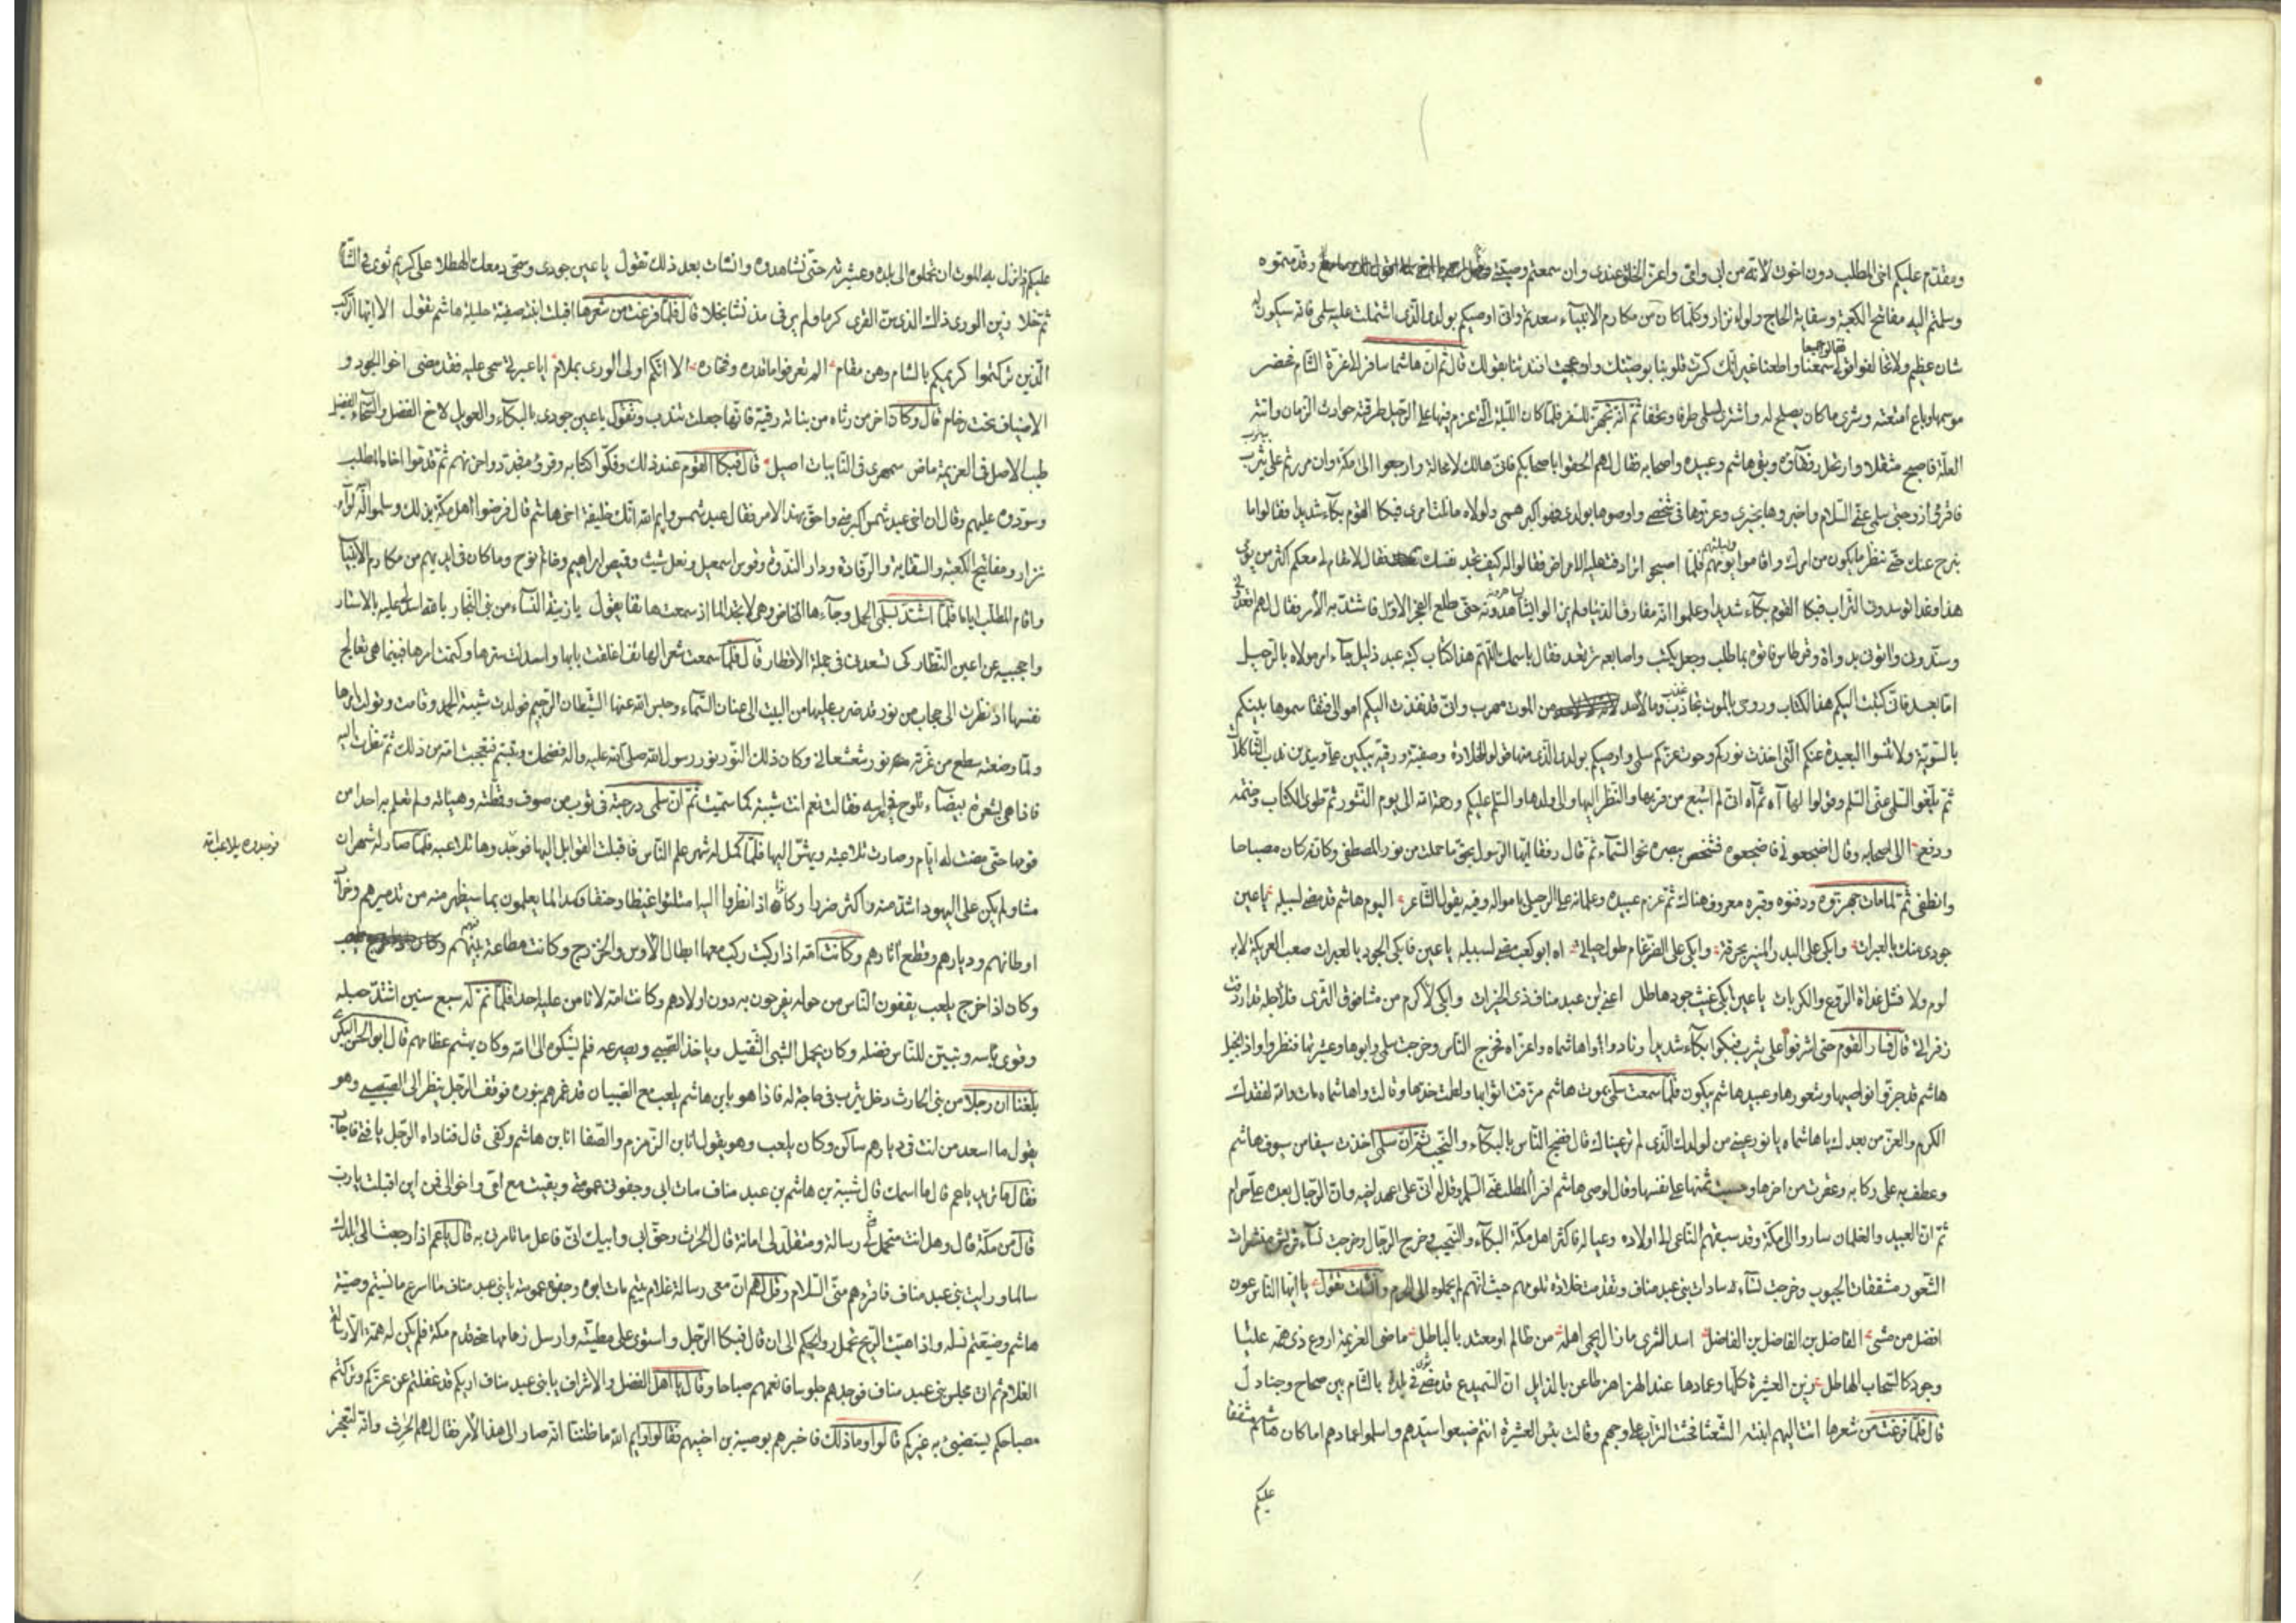 ومقدم عليكم اخي المطلب دون اخوتي لانه من ابي وامي واعز الخلق عندي وان سمعتم وصيتي وقدمتموه
وسلمتم اليه مفاتيح الكعبة وسقاية الحاج ولواء نزار وكلما كان من مكارم الانبياء سعدتم واني اوصيكم بولدي الذي اشتملت عليه سلمى فانه سيكون له
شان عظيم ولا تخالفوا قولي فقالوا جميعا سمعنا واطعنا غير انك كسرت قلوبنا بوصيتك وازعجت افئدتنا بقولك قال ثم ان هاشما سافر الى غزة الشام فحضر
موسمها وباع امتعته وشرى ما كان يصلح له واشترى لسلمى طرفا وتحفا ثم انه تجهز للسفر فلما كان الليلة التي عزم فيها على الرحيل طرقته حوادث الزمان واتته
العلة فاصبح مثقلا وارتحل رفقاؤه وبقي هاشم وعبيده واصحابه فقال لهم الحقوا باصحابكم فاني هالك لا محالة وارجعوا الى مكة وان مررتم على يثرب
فاقرؤا زوجتي سلمى عني السلام واخبروها بخبري وعزوها في شخصي واوصوها بولدي فهو اكبر همي ولولاه ما نلت امري فبكا القوم بكاء شديدا وقالوا ما
نبرح عنك حتى ننظر ما يكون من امرك واقاموا يومهم وليلتهم فلما اصبحوا ترادفت عليه الامراض فقالوا له كيف تجد نفسك فقال لا مقام لي معكم اكثر من يومي
هذا وغدا توسدوني التراب فبكا القوم بكاء شديدا وعلموا انه مفارق الدنيا ولم يزالوا يشاهدونه حتى طلع الفجر الاول فاشتد به الامر فقال لهم اقعدوني
وسندوني واتوني بدواة وقرطاس فاتوه بما طلب وجعل يكتب واصابعه ترتعد فقال باسمك اللهم هذا كتاب كتبه عبد ذليل جاءه امر مولاه بالرحيل
اما بعد فاني كتبت اليكم هذا الكتاب وروحي بالموت تجاذب وما لاحد من الموت مهرب واني قد نفذت اليكم اموالي فتقاسموها بينكم
بالسوية ولا تنسوا البعيدة عنكم التي اخذت نوركم وحوت عزكم سلمى واوصيكم بولدي الذي منها وقولوا لخلادة وصفية ورقية يبكين علي ويندبن ندب الثاكلات
ثم بلغوا سلمى عني السلام وقولوا لها آه ثم آه اني لم اشبع من قربها والنظر اليها والى ولدها والسلام عليكم ورحمة الله الى يوم النشور ثم طوى الكتاب وختمه
ودفعه الى اصحابه وقال اضجعوني فاضجعوه فشخص ببصره نحو السماء ثم قال رفقا ايها الرسول بحق ما حملت من نور المصطفى وكانه كان مصباحا
وانطفى ثم لما مات جهزوه ودفنوه وقبره معروف هناك ثم عزم عبيده وغلمانه على الرحيل باموالهم وفيه يقول الشاعر اليوم هاشم قد مضى لسبيله يا عين
جودي منك بالعبرات وابكي على البدر المنير بحرقة وابكي على الضرغام طول حياتي آه ابو كعب مضى لسبيله يا عين فابكي الجود بالعبرات صعب العريكة لا به
لوم ولا فشل غداة الروع والكربات يا عين ابكي غيث جود هاطل اعني ابن عبد مناف ذي الخيرات وابكي لاكرم من مشا فوق الثرى فلاجله قد اردفت
زفراتي قال فسار القوم حتى اشرفوا على يثرب فبكوا بكاء شديدا ونادوا واهاشماه واعزاه فخرج الناس وخرجت سلمى وابوها وعشيرتها فنظروا واذا بخيل
هاشم قد جزوا نواصيها وشعورها وعبيد هاشم يبكون فلما سمعت سلمى بموت هاشم مزقت اثوابها ولطمت خدها وقالت واهاشماه مات والله لفقدك
الكرم والعز من بعدك يا هاشماه يا نور عيني من لولدك الذي لم تر عيناك قال فضج الناس بالبكاء والنحيب ثم ان سلمى اخذت سيفا من سيوف هاشم
وعطف به على ركابه وعقرت من اخرها وحسبت ثمنها على نفسها وقالت لوصي هاشم اقرأ المطلب عني السلام وقل له اني على عهد اخيه وان الرجال بعده علي حرام
ثم ان العبيد والغلمان ساروا الى مكة وقد سبقهم الناعي الى اولاده وعياله فاكثر اهل مكة البكاء والنحيب وخرج الرجال وخرجت نساء قريش منشرات
الشعور مشققات الجيوب وخرجت نساء سادات بني عبد مناف وتقدمت خلادة تلومهم حيث انهم لم يحملوه الى الحرم وانشات تقول يا ايها الناعون
افضل من مشى الفاضل بن الفاضل بن الفاضل اسد الثرى ما زال يحمي اهله من ظالم او معتد بالباطل ماضي العزيمة اروع ذي همة عليا
وجود كالسحاب الهاطل زين العشيرة كلها وعمادها عند الهزاهز طاعن بالذابل ان السميدع قد مضى في بلدة بالشام بين صحاصح وجنادل
قال فلما فرغت من شعرها اتت اليهم ابنته الشعثا فحثت التراب على وجوههم وقالت بئس العشيرة انتم ضيعوا سيدهم واسلموا عمادهم اما كان هاشم مشفقا
عليكم
عليكم اذ نزل به الموت ان تحملوه الى بلده وعشيرته حتى نشاهده وانشات بعد ذلك تقول يا عين جودي وسحي دمعك الهطلا على كريم ثوى في الشام
ثم خلا زين الورى ذاك الذي سن القرى كرما ولم ير في يديه مذ نشا بخلا قال فلما فرغت من شعرها اقبلت ابنته صفية حليلة هاشم تقول الا ايها الركب
الذين تركتموا كريمكم بالشام رهن مقام الم تعرفوا ما قدره وفخاره الا انكم اولى الورى بملام ايا عبرتي سحي عليه فقد مضى اخو الجود و
الاضياف تحت رخام قال وكان اخر من رثاه من بناته رقية فانها جعلت تندب وتقول يا عين جودي بالبكاء والعويل لاخ الفضل والسخاء الفضيل
طيب الاصل في العزيمة ماض سمهري في النايبات اصيل قال فبكا القوم عند ذلك وفكوا كتابه وقرؤه فجددوا حزنهم ثم قدموا اخاه المطلب
وسودوه عليهم وقال ان اخي عبد شمس اكبر مني واحق بهذا الامر فقال عبد شمس وايم الله انك خليفة اخي هاشم قال فرضوا اهل مكة بذلك وسلموا له لواء
نزار ومفاتيح الكعبة والسقاية والرفادة ودار الندوة وقوس اسمعيل ونعل شيث وقميص ابراهيم وخاتم نوح وما كان في ايديهم من مكارم الانبياء
واقام المطلب اياما فلما اشتد بسلمى الحمل وجاءها المخاض وهي لا تجد الما اذ سمعت هاتفا يقول يا زينة النساء من بني النجار بالله اسدلي عليه بالاستار
واحجبيه عن اعين النظار كي تسعدي في جملة الاقطار قال فلما سمعت شعر الهاتف اغلقت بابها واسدلت سترها وكتمت امرها فبينما هي تعالج
نفسها اذ نظرت الى حجاب من نور قد ضرب عليها من البيت الى عنان السماء وحبس الله عنها الشيطان الرجيم فولدت شيبة الحمد وقامت وتولت امرها
ولما وضعته سطع من غرته نور شعشعاني وكان ذلك النور نور رسول الله صلى الله عليه واله فضحك وتبسم فتعجبت امه من ذلك ثم نظرت اليه
فاذا هي بشعرة بيضاء تلوح في راسه فقالت نعم انت شيبة كما سميت ثم ان سلمى درجته في ثوب من صوف وقمطته وهيأته ولم تعلم به احدا من
قومها حتى مضت له ايام وصارت تلاعبه ويهش اليها فلما كمل له شهر علم الناس فاقبلت القوابل اليها فوجدوها تلاعبه فلما صار له شهران
فوجدوه يلاعب امه
مشا ولم يكن على اليهود اشد منه واكثر ضررا وكانوا اذا نظروا اليه امتلئوا غيظا وحنقا وكمدا لما يعلمون بما سيظهر منه من تدميرهم وخراب
اوطانهم وديارهم وقطع اثارهم وكانت امه اذا ركبت ركب معها ابطال الاوس والخزرج وكانت مطاعة بينهم
وكان اذا خرج يلعب يقفون الناس من حوله يفرحون به دون اولادهم وكانت امه لا تامن عليه احدا فلما تم له سبع سنين اشتد حبله
وقوي باسه وتبين للناس فضله وكان يحمل الشيئ الثقيل وياخذ الصبي ويصرعه فلم يشكوه الى امه وكان يهشم عظامهم قال ابو الحسن البكري
بلغنا ان رجلا من بني الحارث دخل يثرب في حاجة له فاذا هو بابن هاشم يلعب مع الصبيان قد غمرهم بنوره فوقف الرجل ينظر الى الصبي وهو
يقول ما اسعد من انت في ديارهم ساكن وكان يلعب وهو يقول انا ابن الزمزم والصفا انا ابن هاشم وكفى قال فناداه الرجل يا فتى فاجابه
فقال ما تريد يا عم قال ما اسمك قال شيبة بن هاشم بن عبد مناف مات ابي وجفوني عمومتي وبقيت مع امي واخوالي فمن اين اقبلت يا عم
قال من مكة قال وهل انت متحمل لي رسالة ومتقلد لي امانة قال الحارث وحق ابي وابيك اني فاعل ما تامرني به قال يا عم اذا رجعت الى بلدك
سالما ورايت بني عبد مناف فاقرئهم مني السلام وقل لهم ان معي رسالة غلام يتيم مات ابوه وجفوه عمومته يا بني عبد مناف ما اسرع ما نسيتم وصية
هاشم وضيعتم نسله واذا هبت الريح تحمل روايحكم الي ان قال فبكا الرجل واستوى على مطيته وارسل زمامها حتى قدم مكة فلم يكن له همة الا رسالة
الغلام ثم اتى مجلس بني عبد مناف فوجدهم جلوسا فانعمهم صباحا وقال يا اهل الفضل والاشراف يا بني عبد مناف اراكم قد غفلتم عن عزكم وتركتم
مصباحكم يستضيئ به غيركم قالوا وما ذلك فاخبرهم بوصية بن اخيهم فقالوا وايم الله ما ظننا انه صار الى هذا الامر فقال لهم الحرث وانه لتعجز